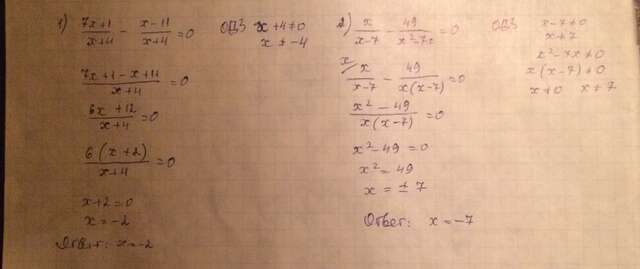 1) (7x+1)/(x+4) - (x-11)/(x+4) = 0   ОДЗ x+4≠0
x ≠ -4
(7x+1-x+11)/(x+4) = 0
(6x+12)/(x+4) = 0
6(x+2)/(x+4) = 0
x+2=0
x=-2
Ответ: x=-2
2) x/(x-7) - 49/(x²-7x) = 0   ОДЗ x-7≠0
x≠7
x²-7x≠0
x(x-7)≠0
x≠0   x≠7
x/ x/(x-7) - 49/(x(x-7)) = 0
(x²-49)/(x(x-7)) = 0
x²-49=0
x²=49
x=±7
Ответ: x=-7